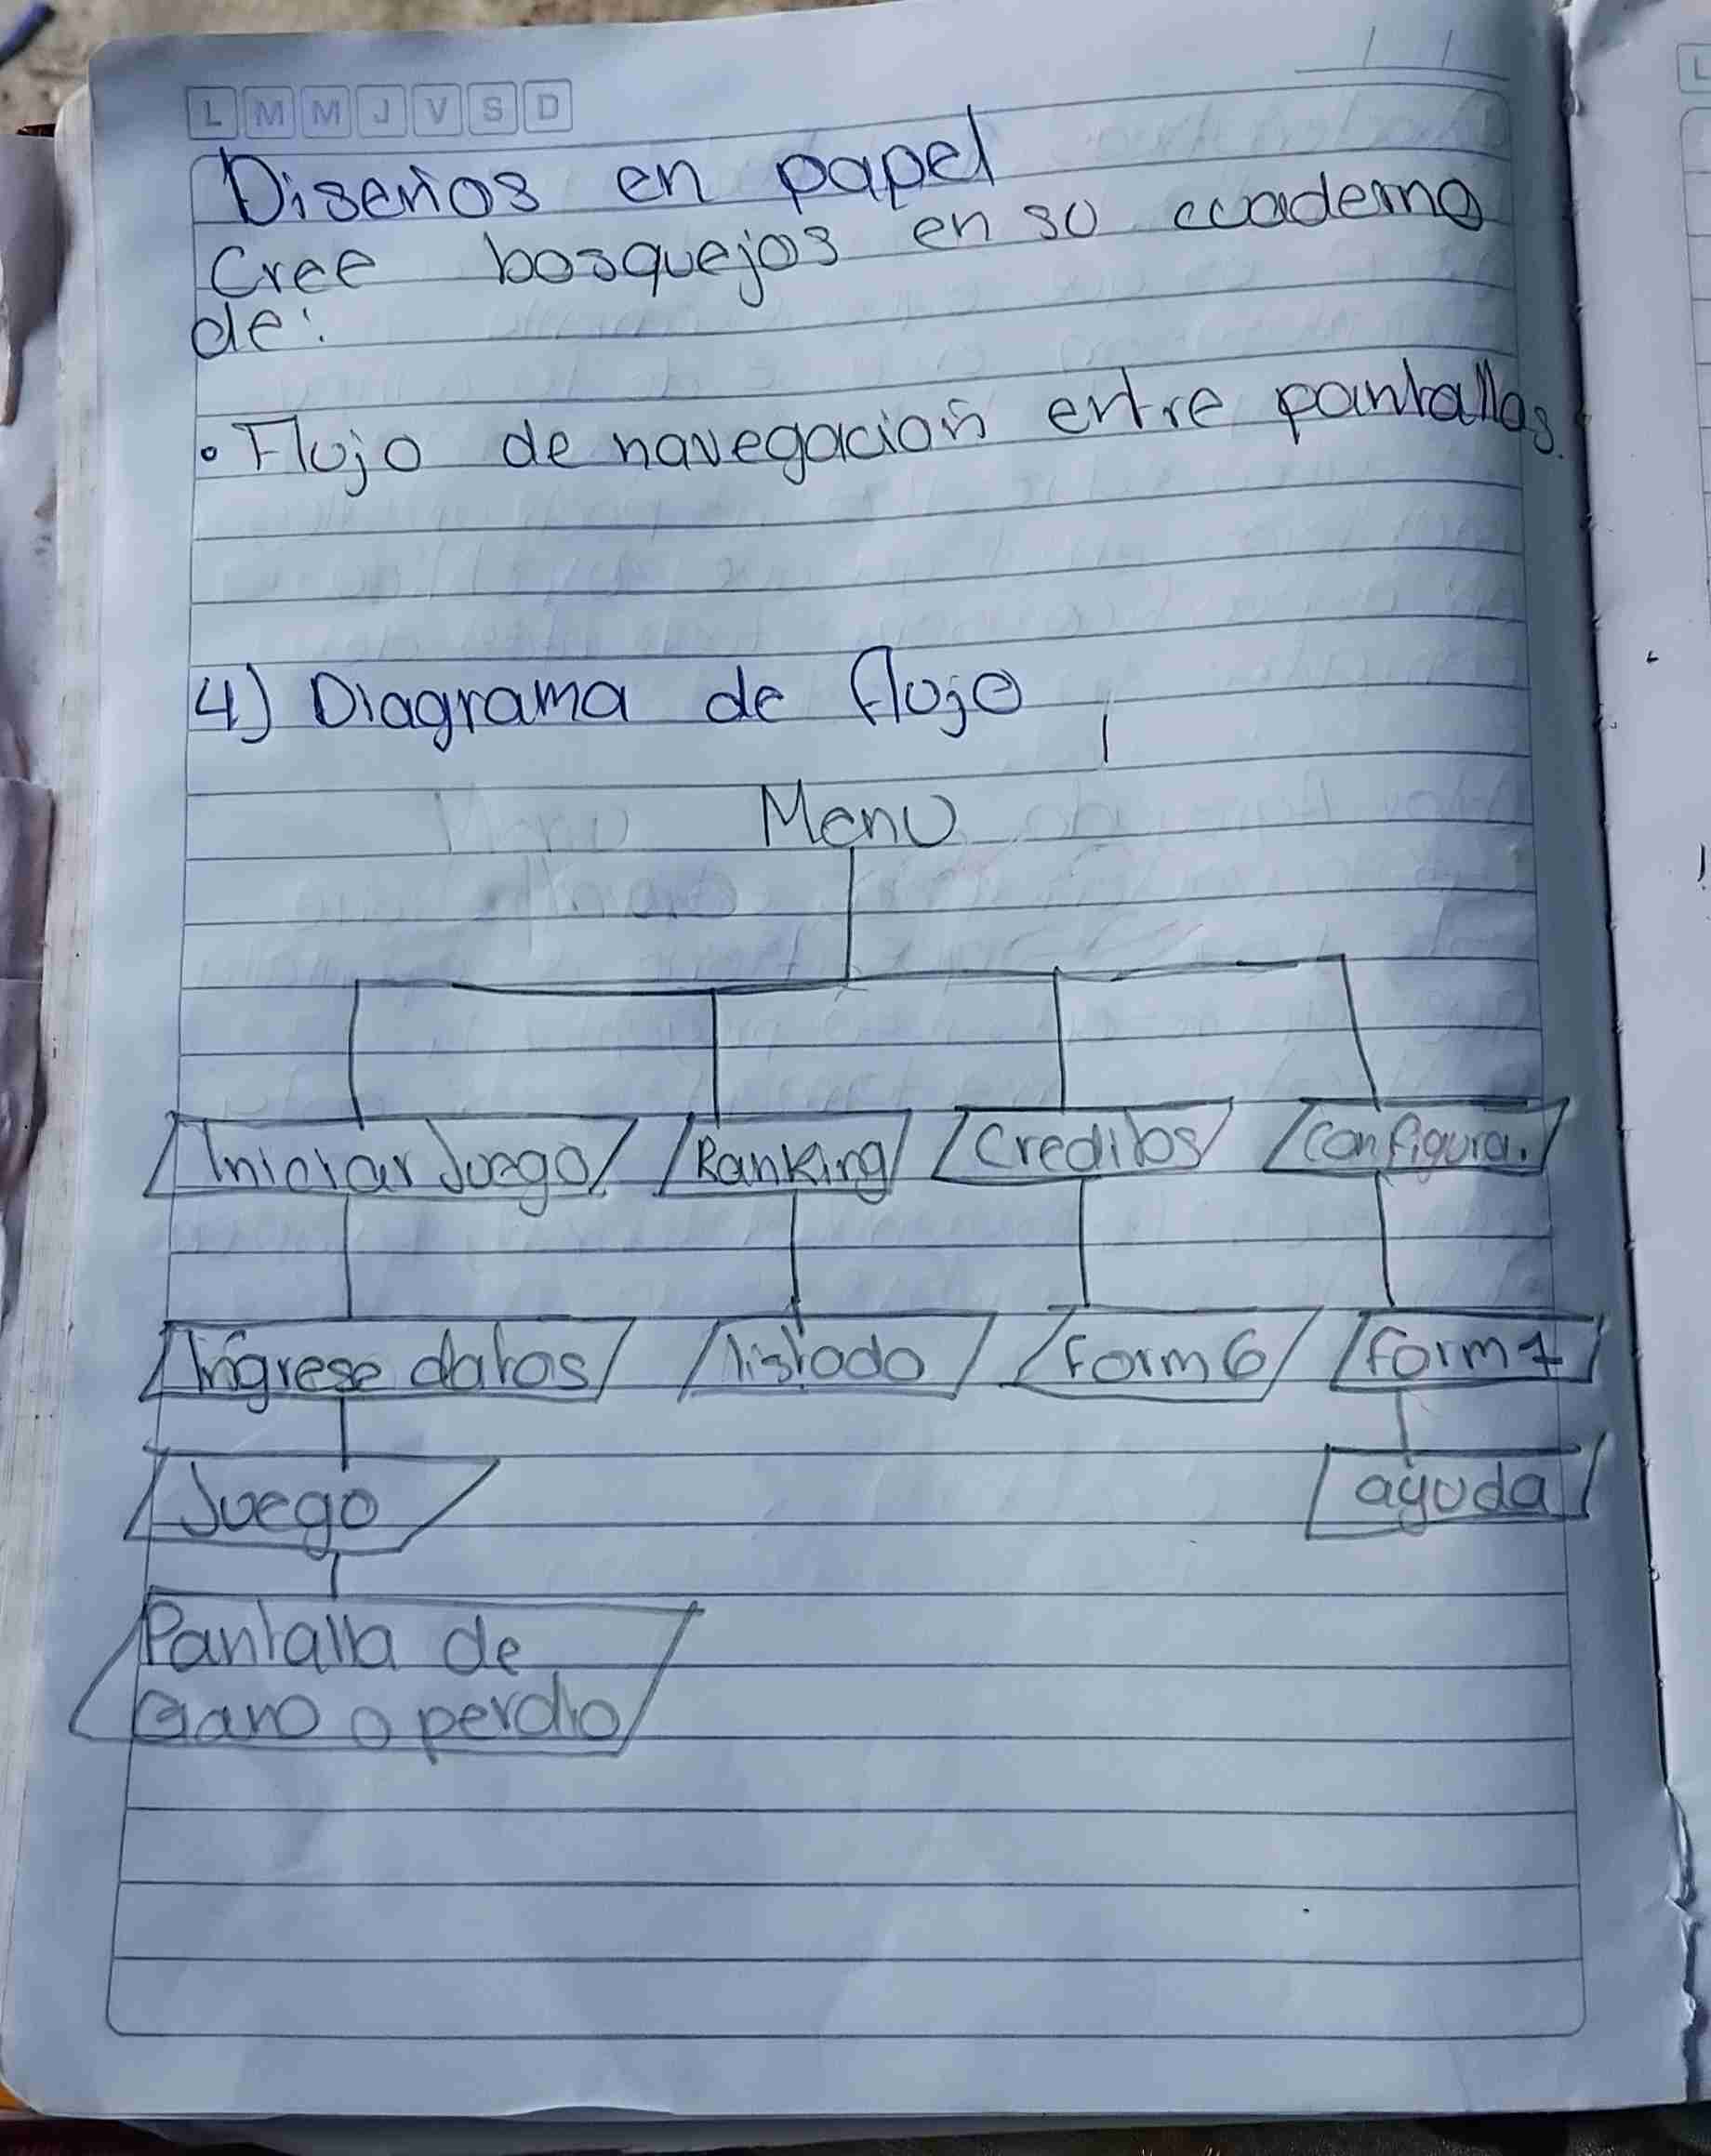 L M M J V S D
Diseños en papel
Cree bosquejos en su cuaderno
de:
• Flujo de navegación entre pantallas.
4) Diagrama de flujo
Menu
Iniciar Juego Ranking Creditos Configura.
Ingrese datos listado Form 6 form 7
Juego ayuda
Pantalla de
Gano o perdio